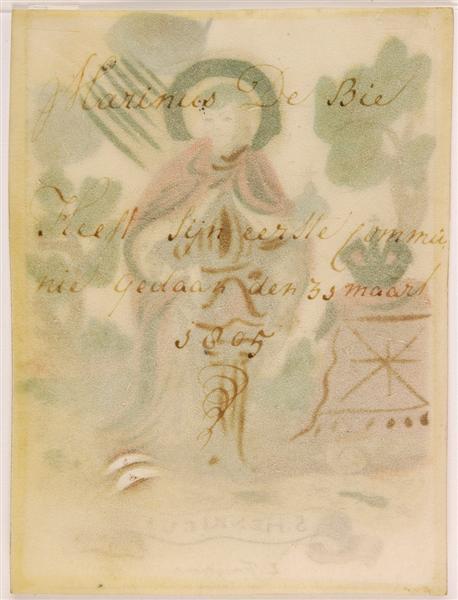 Marinus De Bie
Heeft Sijn eerste Commu
nie gedaan den 31 maart
1805